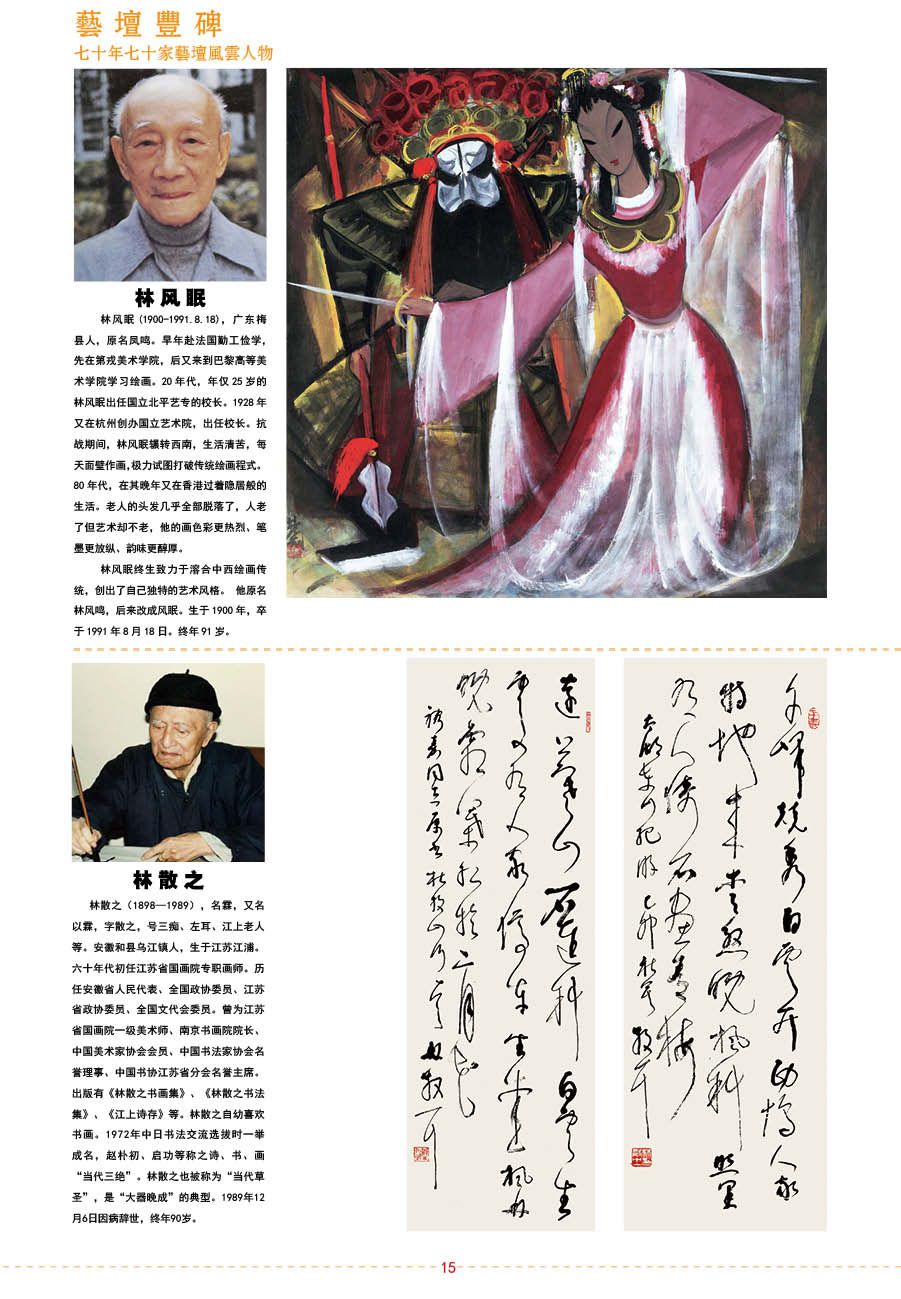 藝壇豐碑
七十年七十家藝壇風雲人物
林风眠
林风眠(1900-1991.8.18)，广东梅
县人，原名凤鸣。早年赴法国勤工俭学，
先在第戎美术学院，后又来到巴黎高等美
术学院学习绘画。20 年代，年仅 25 岁的
林风眠出任国立北平艺专的校长。1928 年
又在杭州创办国立艺术院，出任校长。抗
战期间，林风眠辗转西南，生活清苦，每
天面壁作画，极力试图打破传统绘画程式。
80 年代，在其晚年又在香港过着隐居般的
生活。老人的头发几乎全部脱落了，人老
了但艺术却不老，他的画色彩更热烈、笔
墨更放纵、韵味更醇厚。
林风眠终生致力于溶合中西绘画传
统，创出了自己独特的艺术风格。 他原名
林风鸣，后来改成风眠。生于 1900 年，卒
于 1991 年 8 月 18 日。终年 91 岁。
林散之
林散之（1898—1989），名霖，又名
以霖，字散之，号三痴、左耳、江上老人
等。安徽和县乌江镇人，生于江苏江浦。
六十年代初任江苏省国画院专职画师。历
任安徽省人民代表、全国政协委员、江苏
省政协委员、全国文代会委员。曾为江苏
省国画院一级美术师、南京书画院院长、
中国美术家协会会员、中国书法家协会名
誉理事、中国书协江苏省分会名誉主席。
出版有《林散之书画集》、《林散之书法
集》、《江上诗存》等。林散之自幼喜欢
书画。1972年中日书法交流选拔时一举
成名，赵朴初、启功等称之诗、书、画
“当代三绝”。林散之也被称为“当代草
圣”，是“大器晚成”的典型。1989年12
月6日因病辞世，终年90岁。
远上寒山石径斜白云生
处有人家停车坐爱枫林
晚霜叶红于二月花
15